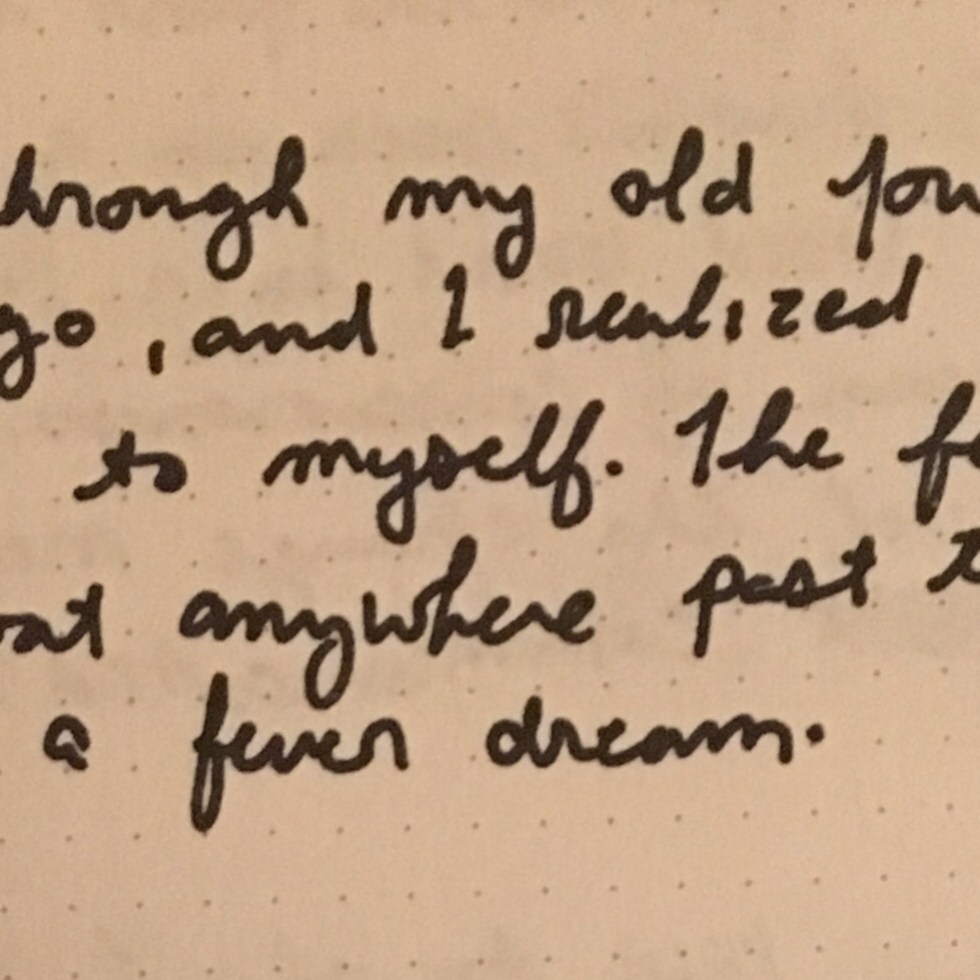 through my old jou
go, and I realized
to myself. The f
at anywhere past t
a fever dream.